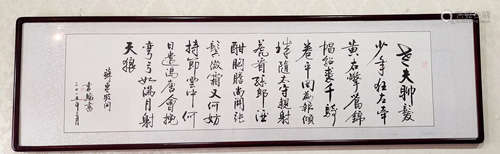 老夫聊發
少年狂左牽
黃右擎蒼錦
帽貂裘千騎
卷平岡為報傾
城隨太守親射
虎看孫郎酒
酣胸膽尚開張
鬢微霜又何妨
持節雲中何
日遣馮唐會挽
彎弓如滿月射
天狼
蘇東坡詞